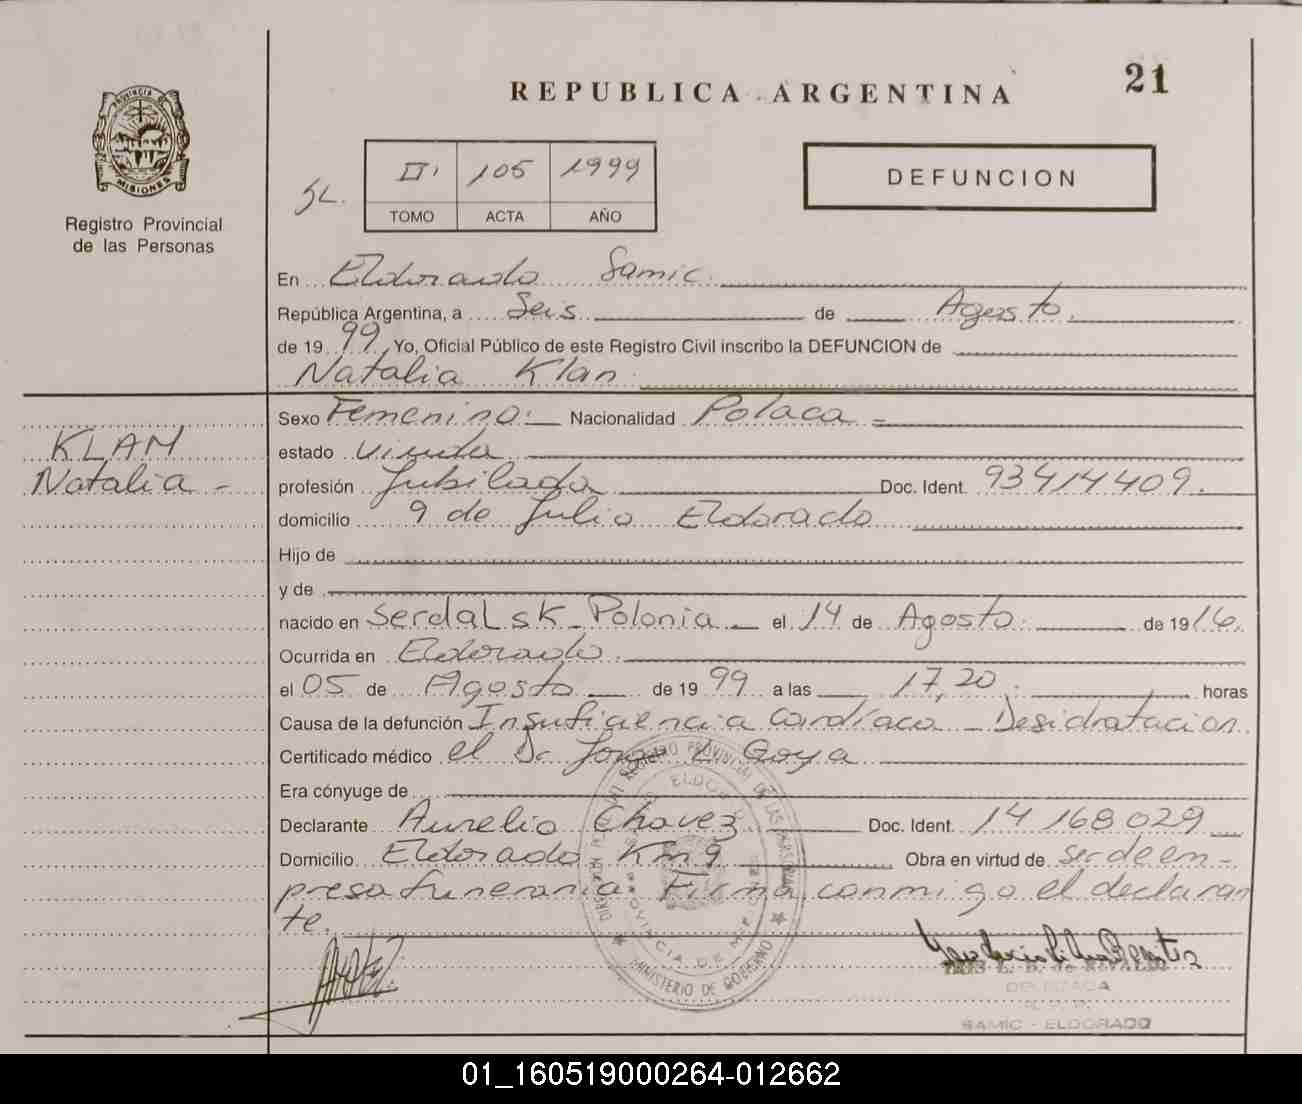 21
REPUBLICA ARGENTINA
PROVINCIA DE
MISIONES
Registro Provincial
de las Personas
SL.
II. 105 1999
TOMO ACTA AÑO
DEFUNCION
En Eldorado Samic.
República Argentina, a Seis de Agosto.
de 1999, Yo, Oficial Público de este Registro Civil inscribo la DEFUNCION de
Natalia Klan
KLAM
Natalia -
Sexo Femenino.- Nacionalidad Polaca -
estado viuda
profesión Jubilada Doc. Ident. 93414409.
domicilio 9 de Julio Eldorado
Hijo de
y de
nacido en Serdalsk - Polonia - el 14 de Agosto. de 1916.
Ocurrida en Eldorado.
el 05 de Agosto de 1999 a las 17,20 horas
Causa de la defunción Insuficiencia Cardíaca - Desidratacion.
Certificado médico el Dr Jorge L Goya
Era cónyuge de
Declarante Aurelio Chavez Doc. Ident. 14 168 029
Domicilio Eldorado Km 9 Obra en virtud de ser de em-
presa funeraria. Firma conmigo el declaran
te.
REGISTRO PROVINCIAL DE LAS PERSONAS
MINISTERIO DE GOBIERNO
PROVINCIA DE
IRIS L. B. de RIVALDI
DELEGADA
SAMIC - ELDORADO
01_160519000264-012662